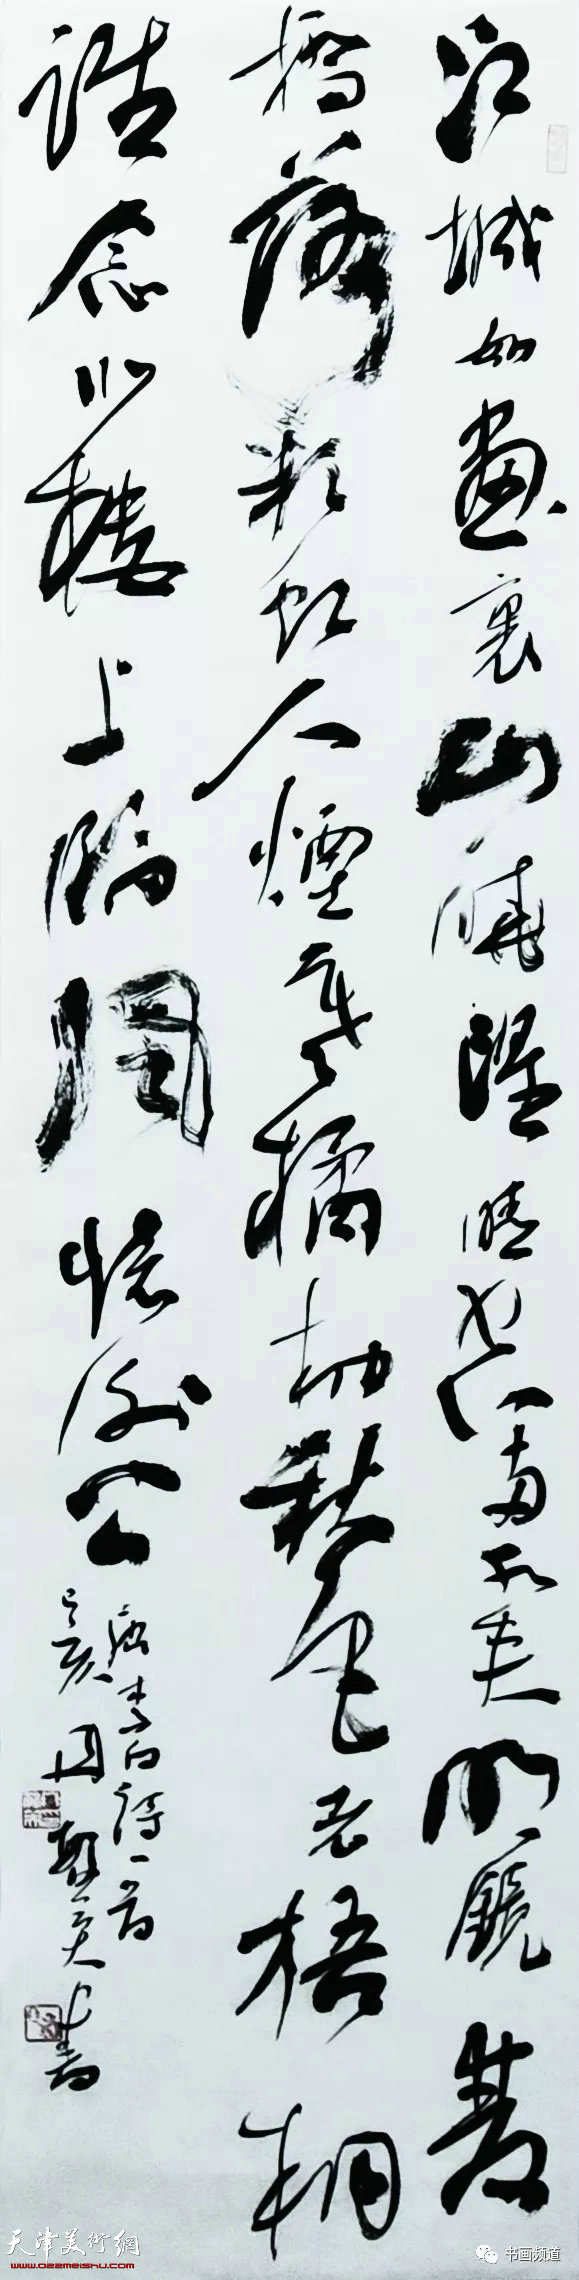 江城如画裏山曉望晴空兩水夾明鏡雙
橋落彩虹人煙寒橘柚秋色老梧桐
誰念北樓上臨風懷謝公
唐李白詩一首
己亥
書
天津美術網
www.022meishu.com
书画频道